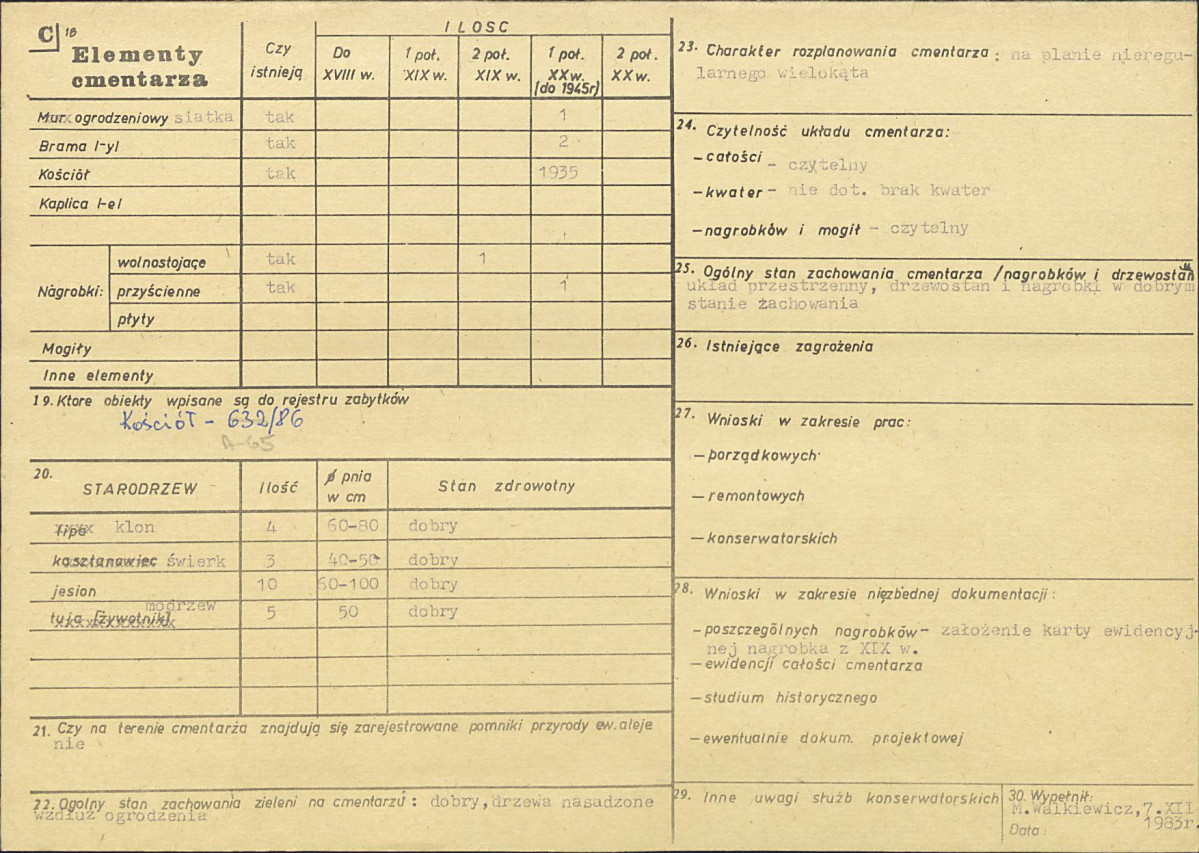 C 18
Elementy
cmentarza
Czy
istnieją
ILOSC
Do
XVIII w.
1 poł.
XIX w.
2 poł.
XIX w.
1 poł.
XXw.
(do 1945r)
2 poł.
XX w.
Mur ogrodzeniowy siatka tak 1
Brama l-yl tak 2
Kościół tak 1935
Kaplica l-el
Nagrobki:
wolnostojące tak 1
przyścienne tak 1
płyty
Mogiły
Inne elementy
19. Ktore obiekty wpisane są do rejestru zabytków
Kościół - 632/86
A-65
20.
STARODRZEW
Ilość
ø pnia
w cm
Stan zdrowotny
lipa klon 4 60-80 dobry
kasztanowiec świerk 3 40-50 dobry
jesion 10 60-100 dobry
modrzew
tuja [żywotnik] 5 50 dobry
21. Czy na terenie cmentarza znajdują się zarejestrowane pomniki przyrody ew. aleje
nie
22. Ogolny stan zachowania zieleni na cmentarzu : dobry, drzewa nasadzone
wzdłuż ogrodzenia
23. Charakter rozplanowania cmentarza : na planie nieregu-
larnego wielokąta
24. Czytelność układu cmentarza:
- całości - czytelny
- kwater - nie dot. brak kwater
- nagrobków i mogił - czytelny
25. Ogólny stan zachowania cmentarza /nagrobków i drzewostan
układ przestrzenny, drzewostan i nagrobki w dobrym
stanie zachowania
26. Istniejące zagrożenia
27. Wnioski w zakresie prac:
- porządkowych
- remontowych
- konserwatorskich
28. Wnioski w zakresie niezbednej dokumentacji :
- poszczególnych nagrobków - założenie karty ewidencyj-
nej nagrobka z XIX w.
- ewidencji całości cmentarza
- studium historycznego
- ewentualnie dokum. projektowej
29. Inne uwagi służb konserwatorskich
30. Wypełnił:
M.Walkiewicz, 7.XII
1983r.
Data: